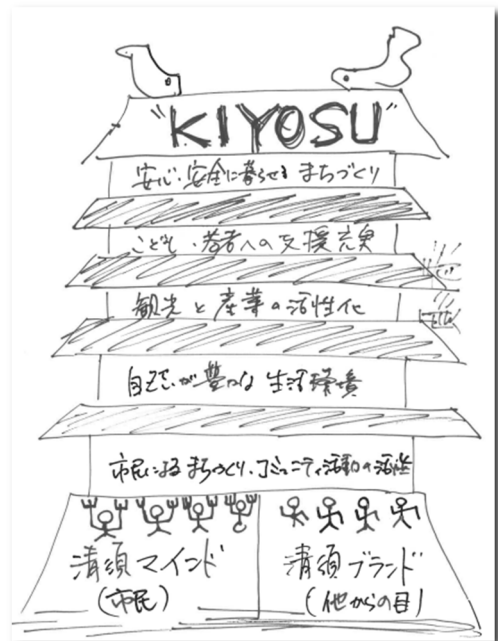 "KIYOSU"
安心・安全に暮らせる まちづくり
こども・若者への支援充実
観光と産業の活性化
が豊かな 生活環境
市民によるまちづくり・コミュニティ活動の活性
清須マインド
(市民)
清須ブランド
(他からの目)